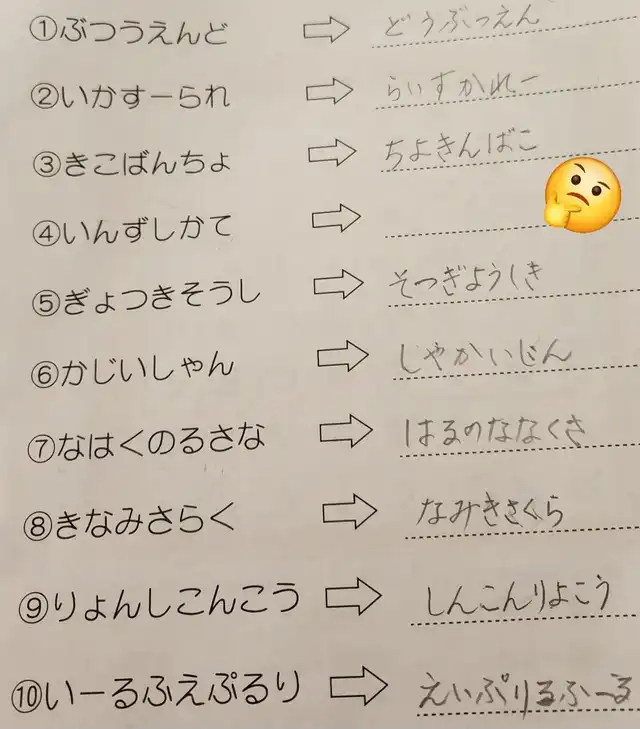 ①ぶつうえんど ⇨ どうぶつえん
②いかすーられ ⇨ らいすかれー
③きこばんちょ ⇨ ちよきんばこ
④いんずしかて ⇨
⑤ぎょつきそうし ⇨ そつぎようしき
⑥かじいしゃん ⇨ しやかいじん
⑦なはくのるさな ⇨ はるのななくさ
⑧きなみさらく ⇨ なみきさくら
⑨りょんしこんこう ⇨ しんこんりよこう
⑩いーるふえぷるり ⇨ えいぷりるふーる